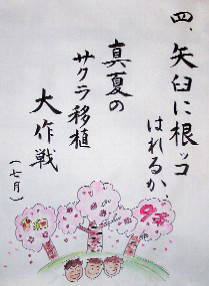 四、矢臼に根ッコ
はれるか、
真夏の
サクラ移植
大作戦
(七月)